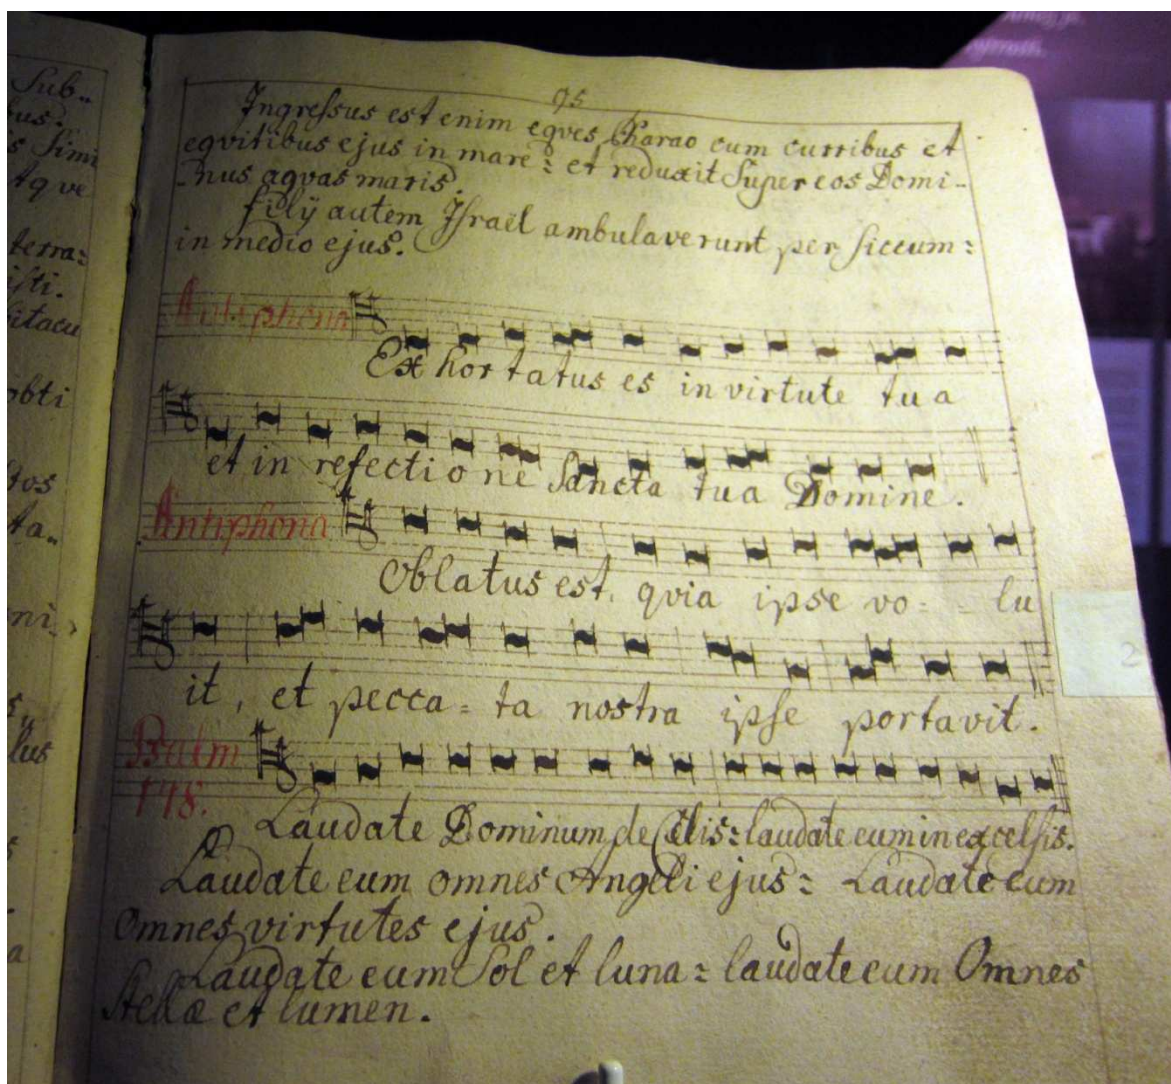 Sub-
bus.
s Simi
tqve
terra:
isti.
obti
tos
ta.
ni.
lus
95
Ingressus est enim eqves Pharao cum curribus et
eqvitibus ejus in mare: et reduxit Super eos Domi-
-nus aqvas maris.
filÿ autem Israël ambulaverunt per siccum:
in medio ejus.
Antiphona
Exhortatus es in virtute tua
et in refectione Sancta tua Domine.
Antiphona
Oblatus est, qvia ipse vo - - lu
it, et pecca = ta nostra ipse portavit.
Psalm
148.
Laudate Dominum de Cælis: laudate eum in excelsis.
Laudate eum omnes Angeli ejus: Laudate eum
Omnes virtutes ejus.
Laudate eum Sol et luna: laudate eum Omnes
Stellæ et lumen.
2